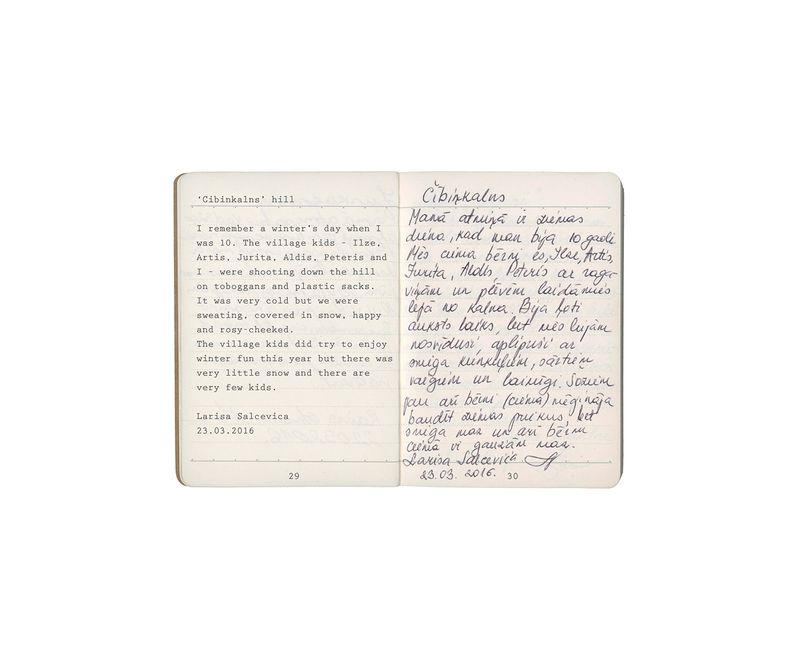 'Cibinkalns' hill
I remember a winter's day when I
was 10. The village kids - Ilze,
Artis, Jurita, Aldis, Peteris and
I - were shooting down the hill
on toboggans and plastic sacks.
It was very cold but we were
sweating, covered in snow, happy
and rosy-cheeked.
The village kids did try to enjoy
winter fun this year but there was
very little snow and there are
very few kids.
Larisa Salcevica
23.03.2016
29
Čibiņkalns
Manā atmiņā ir ziemas
diena, kad man bija 10 gadi.
Mēs ciema bērni es, Ilze, Artis,
Jurita, Aldis, Pēteris ar raga
viņām un plēvēm laidāmies
lejā no kalna. Bija ļoti
auksts laiks, bet mēs bijām
nosvīduši, aplipuši ar
sniega kunkuļiem, sārtiem
vaigiem un laimīgi. Šoziem
gan arī bērni (ciema) mēģināja
baudīt ziemas priekus, bet
sniega maz un arī bērnu
ciemā ir gaužām maz.
Larisa Salcevica
23.03. 2016.
30